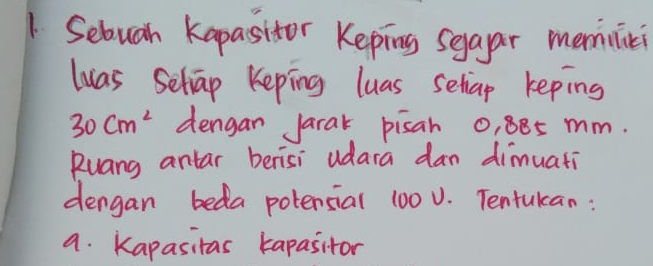 1. Sebuah Kapasitor Keping sejajar memiliki
luas setiap keping luas setiap keping
30 cm² dengan jarak pisah 0,885 mm.
Ruang antar berisi udara dan dimuati
dengan beda potensial 100 V. Tentukan:
a. Kapasitas kapasitor